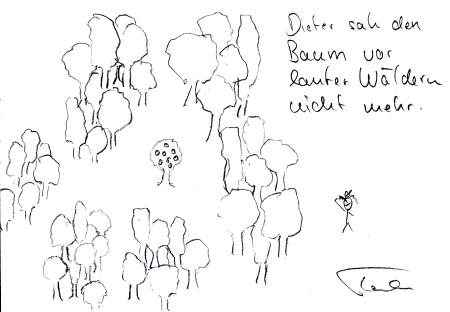 Dieter sah den
Baum vor
lauter Wäldern
nicht mehr.